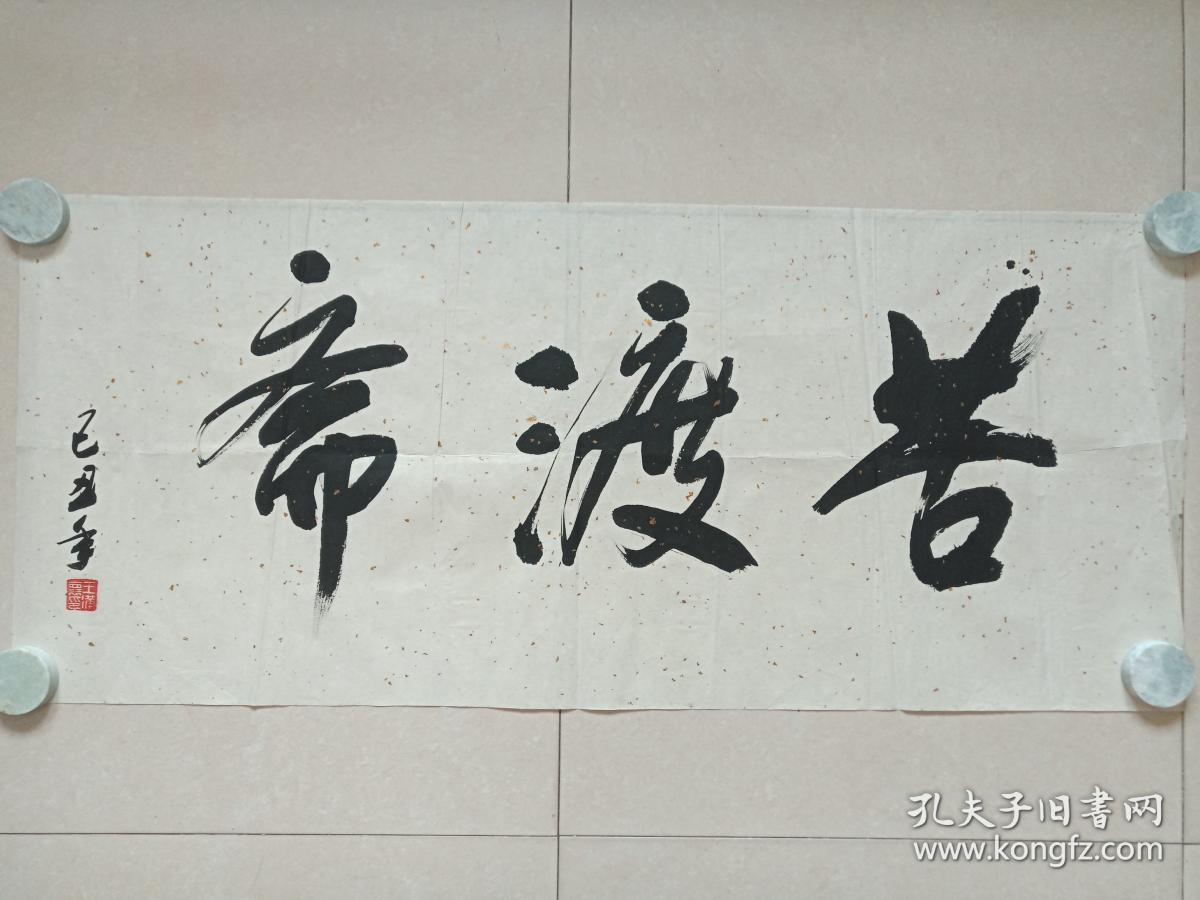 苦渡斋
己丑年
孔夫子旧书网
www.kongfz.com